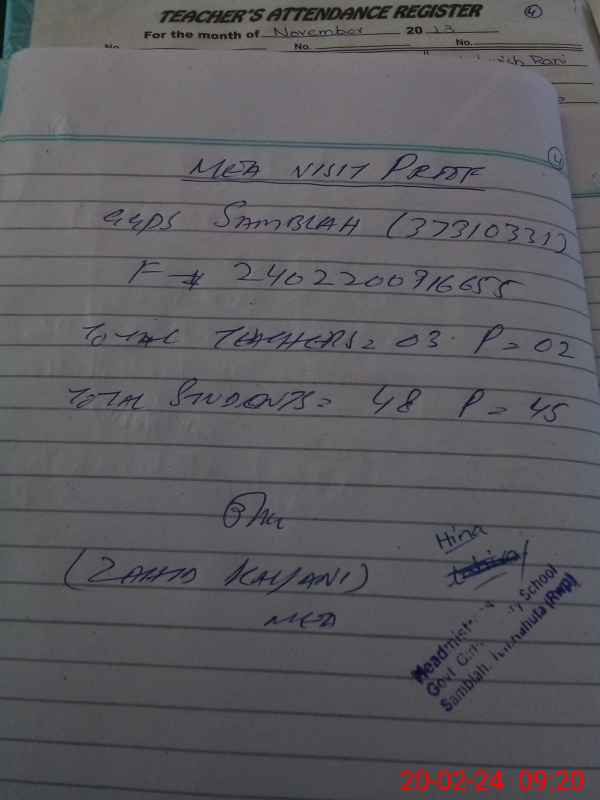 TEACHER'S ATTENDANCE REGISTER
4
For the month of November 2013
No. No. No.
Rani
4
MEA VISIT PROOF
GGPS SAMBLAH (37310331)
F # 2402200916655
TOTAL TEACHERS = 03. P = 02
TOTAL STUDENTS = 48 P = 45
(ZAHID KAYANI)
MEA
Hina
Headmistress
Govt. Girls School
Samblah, (Rwp)
20-02-24 09:20